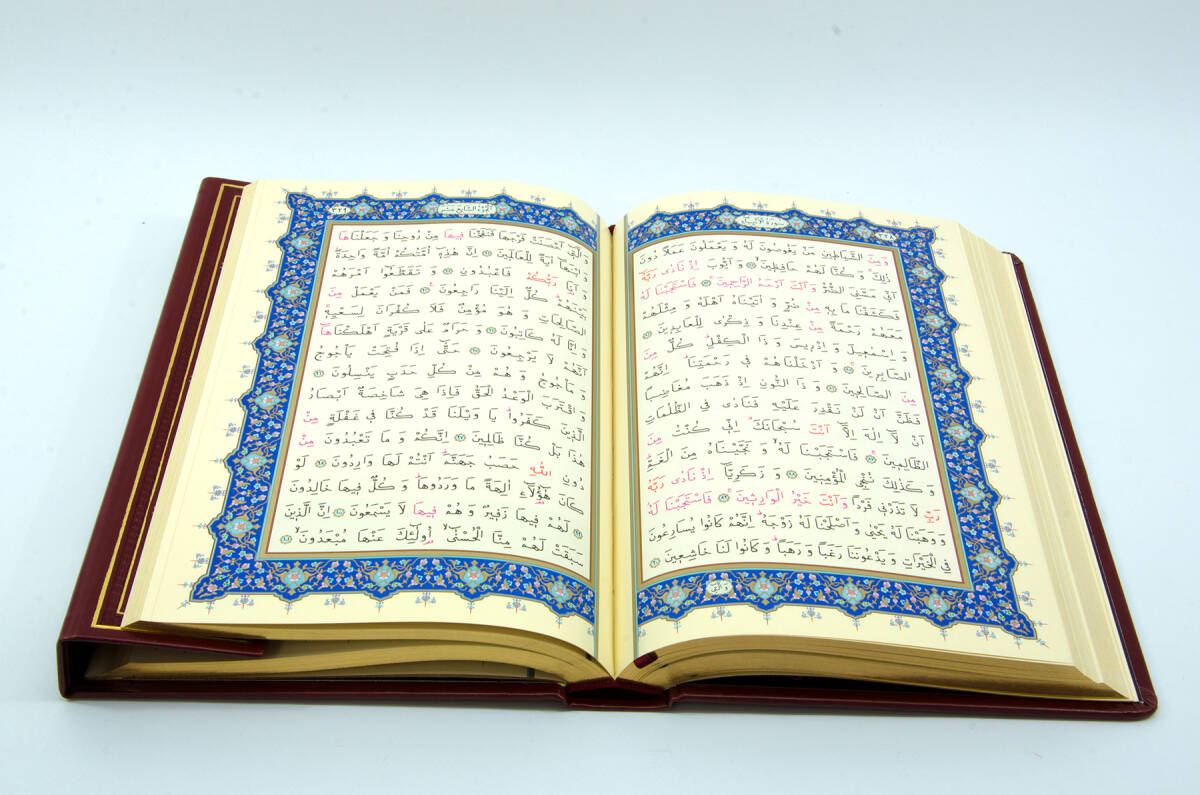 سورة الأنبياء
٣٢٨
وَمِنَ الشَّيَاطِينِ مَنْ يَغُوصُونَ لَهُ وَيَعْمَلُونَ عَمَلًا دُونَ
ذٰلِكَ وَكُنَّا لَهُمْ حَافِظِينَ ﴿٨٢﴾ وَاَيُّوبَ اِذْ نَادٰى رَبَّهُ
اَنِّي مَسَّنِيَ الضُّرُّ وَاَنْتَ اَرْحَمُ الرَّاحِمِينَ ﴿٨٣﴾ فَاسْتَجَبْنَا لَهُ
فَكَشَفْنَا مَا بِهِ مِنْ ضُرٍّ وَاٰتَيْنَاهُ اَهْلَهُ وَمِثْلَهُمْ
مَعَهُمْ رَحْمَةً مِنْ عِنْدِنَا وَذِكْرٰى لِلْعَابِدِينَ ﴿٨٤﴾
وَاِسْمٰعِيلَ وَاِدْرِيسَ وَذَا الْكِفْلِ كُلٌّ مِنَ
الصَّابِرِينَ ﴿٨٥﴾ وَاَدْخَلْنَاهُمْ فِي رَحْمَتِنَا اِنَّهُمْ
مِنَ الصَّالِحِينَ ﴿٨٦﴾ وَذَا النُّونِ اِذْ ذَهَبَ مُغَاضِبًا
فَظَنَّ اَنْ لَنْ نَقْدِرَ عَلَيْهِ فَنَادٰى فِي الظُّلُمَاتِ
اَنْ لَا اِلٰهَ اِلَّا اَنْتَ سُبْحَانَكَ اِنِّي كُنْتُ مِنَ
الظَّالِمِينَ ﴿٨٧﴾ فَاسْتَجَبْنَا لَهُ وَنَجَّيْنَاهُ مِنَ الْغَمِّ
وَكَذٰلِكَ نُنْجِي الْمُؤْمِنِينَ ﴿٨٨﴾ وَزَكَرِيَّا اِذْ نَادٰى رَبَّهُ
رَبِّ لَا تَذَرْنِي فَرْدًا وَاَنْتَ خَيْرُ الْوَارِثِينَ ﴿٨٩﴾ فَاسْتَجَبْنَا لَهُ
وَوَهَبْنَا لَهُ يَحْيٰى وَاَصْلَحْنَا لَهُ زَوْجَهُ اِنَّهُمْ كَانُوا يُسَارِعُونَ
فِي الْخَيْرَاتِ وَيَدْعُونَنَا رَغَبًا وَرَهَبًا وَكَانُوا لَنَا خَاشِعِينَ ﴿٩٠﴾
وَالَّتِي
الجزء السابع عشر
٣٢٩
وَالَّتِي اَحْصَنَتْ فَرْجَهَا فَنَفَخْنَا فِيهَا مِنْ رُوحِنَا وَجَعَلْنَاهَا
وَابْنَهَا اٰيَةً لِلْعَالَمِينَ ﴿٩١﴾ اِنَّ هٰذِهِ اُمَّتُكُمْ اُمَّةً وَاحِدَةً
وَاَنَا رَبُّكُمْ فَاعْبُدُونِ ﴿٩٢﴾ وَتَقَطَّعُوا اَمْرَهُمْ
بَيْنَهُمْ كُلٌّ اِلَيْنَا رَاجِعُونَ ﴿٩٣﴾ فَمَنْ يَعْمَلْ مِنَ
الصَّالِحَاتِ وَهُوَ مُؤْمِنٌ فَلَا كُفْرَانَ لِسَعْيِهِ
وَاِنَّا لَهُ كَاتِبُونَ ﴿٩٤﴾ وَحَرَامٌ عَلٰى قَرْيَةٍ اَهْلَكْنَاهَا
اَنَّهُمْ لَا يَرْجِعُونَ ﴿٩٥﴾ حَتّٰى اِذَا فُتِحَتْ يَأْجُوجُ
وَمَأْجُوجُ وَهُمْ مِنْ كُلِّ حَدَبٍ يَنْسِلُونَ ﴿٩٦﴾
وَاقْتَرَبَ الْوَعْدُ الْحَقُّ فَاِذَا هِيَ شَاخِصَةٌ اَبْصَارُ
الَّذِينَ كَفَرُوا يَا وَيْلَنَا قَدْ كُنَّا فِي غَفْلَةٍ مِنْ
هٰذَا بَلْ كُنَّا ظَالِمِينَ ﴿٩٧﴾ اِنَّكُمْ وَمَا تَعْبُدُونَ مِنْ
دُونِ اللّٰهِ حَصَبُ جَهَنَّمَ اَنْتُمْ لَهَا وَارِدُونَ ﴿٩٨﴾ لَوْ
كَانَ هٰٓؤُلَاءِ اٰلِهَةً مَا وَرَدُوهَا وَكُلٌّ فِيهَا خَالِدُونَ
﴿٩٩﴾ لَهُمْ فِيهَا زَفِيرٌ وَهُمْ فِيهَا لَا يَسْمَعُونَ ﴿١٠٠﴾ اِنَّ الَّذِينَ
سَبَقَتْ لَهُمْ مِنَّا الْحُسْنٰى اُولٰٓئِكَ عَنْهَا مُبْعَدُونَ ﴿١٠١﴾